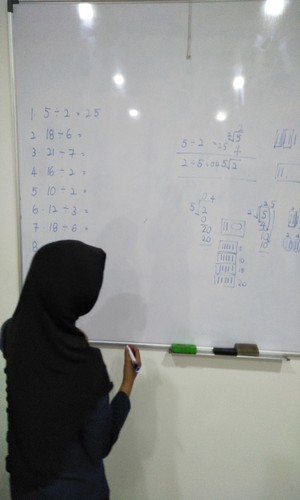 1 5 ÷ 2 = 2.5
2 18 ÷ 6 =
3 21 ÷ 7 =
4 16 ÷ 2 =
5 10 ÷ 2 =
6 12 ÷ 3 =
7 18 ÷ 6 =
8
5 ÷ 2 = 2.5
2 ÷ 5 =
5√2
0
20
20
2√5
10
10